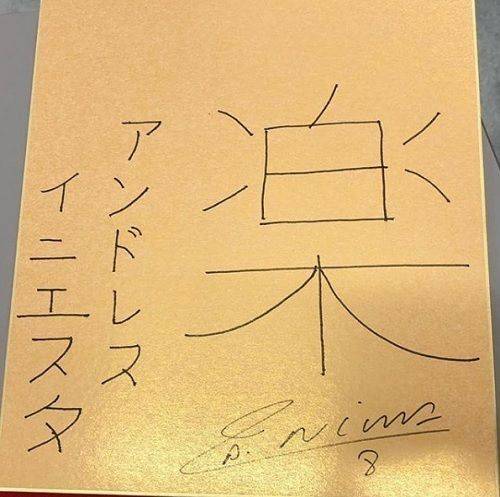 楽
アンドレス
イニエスタ
8